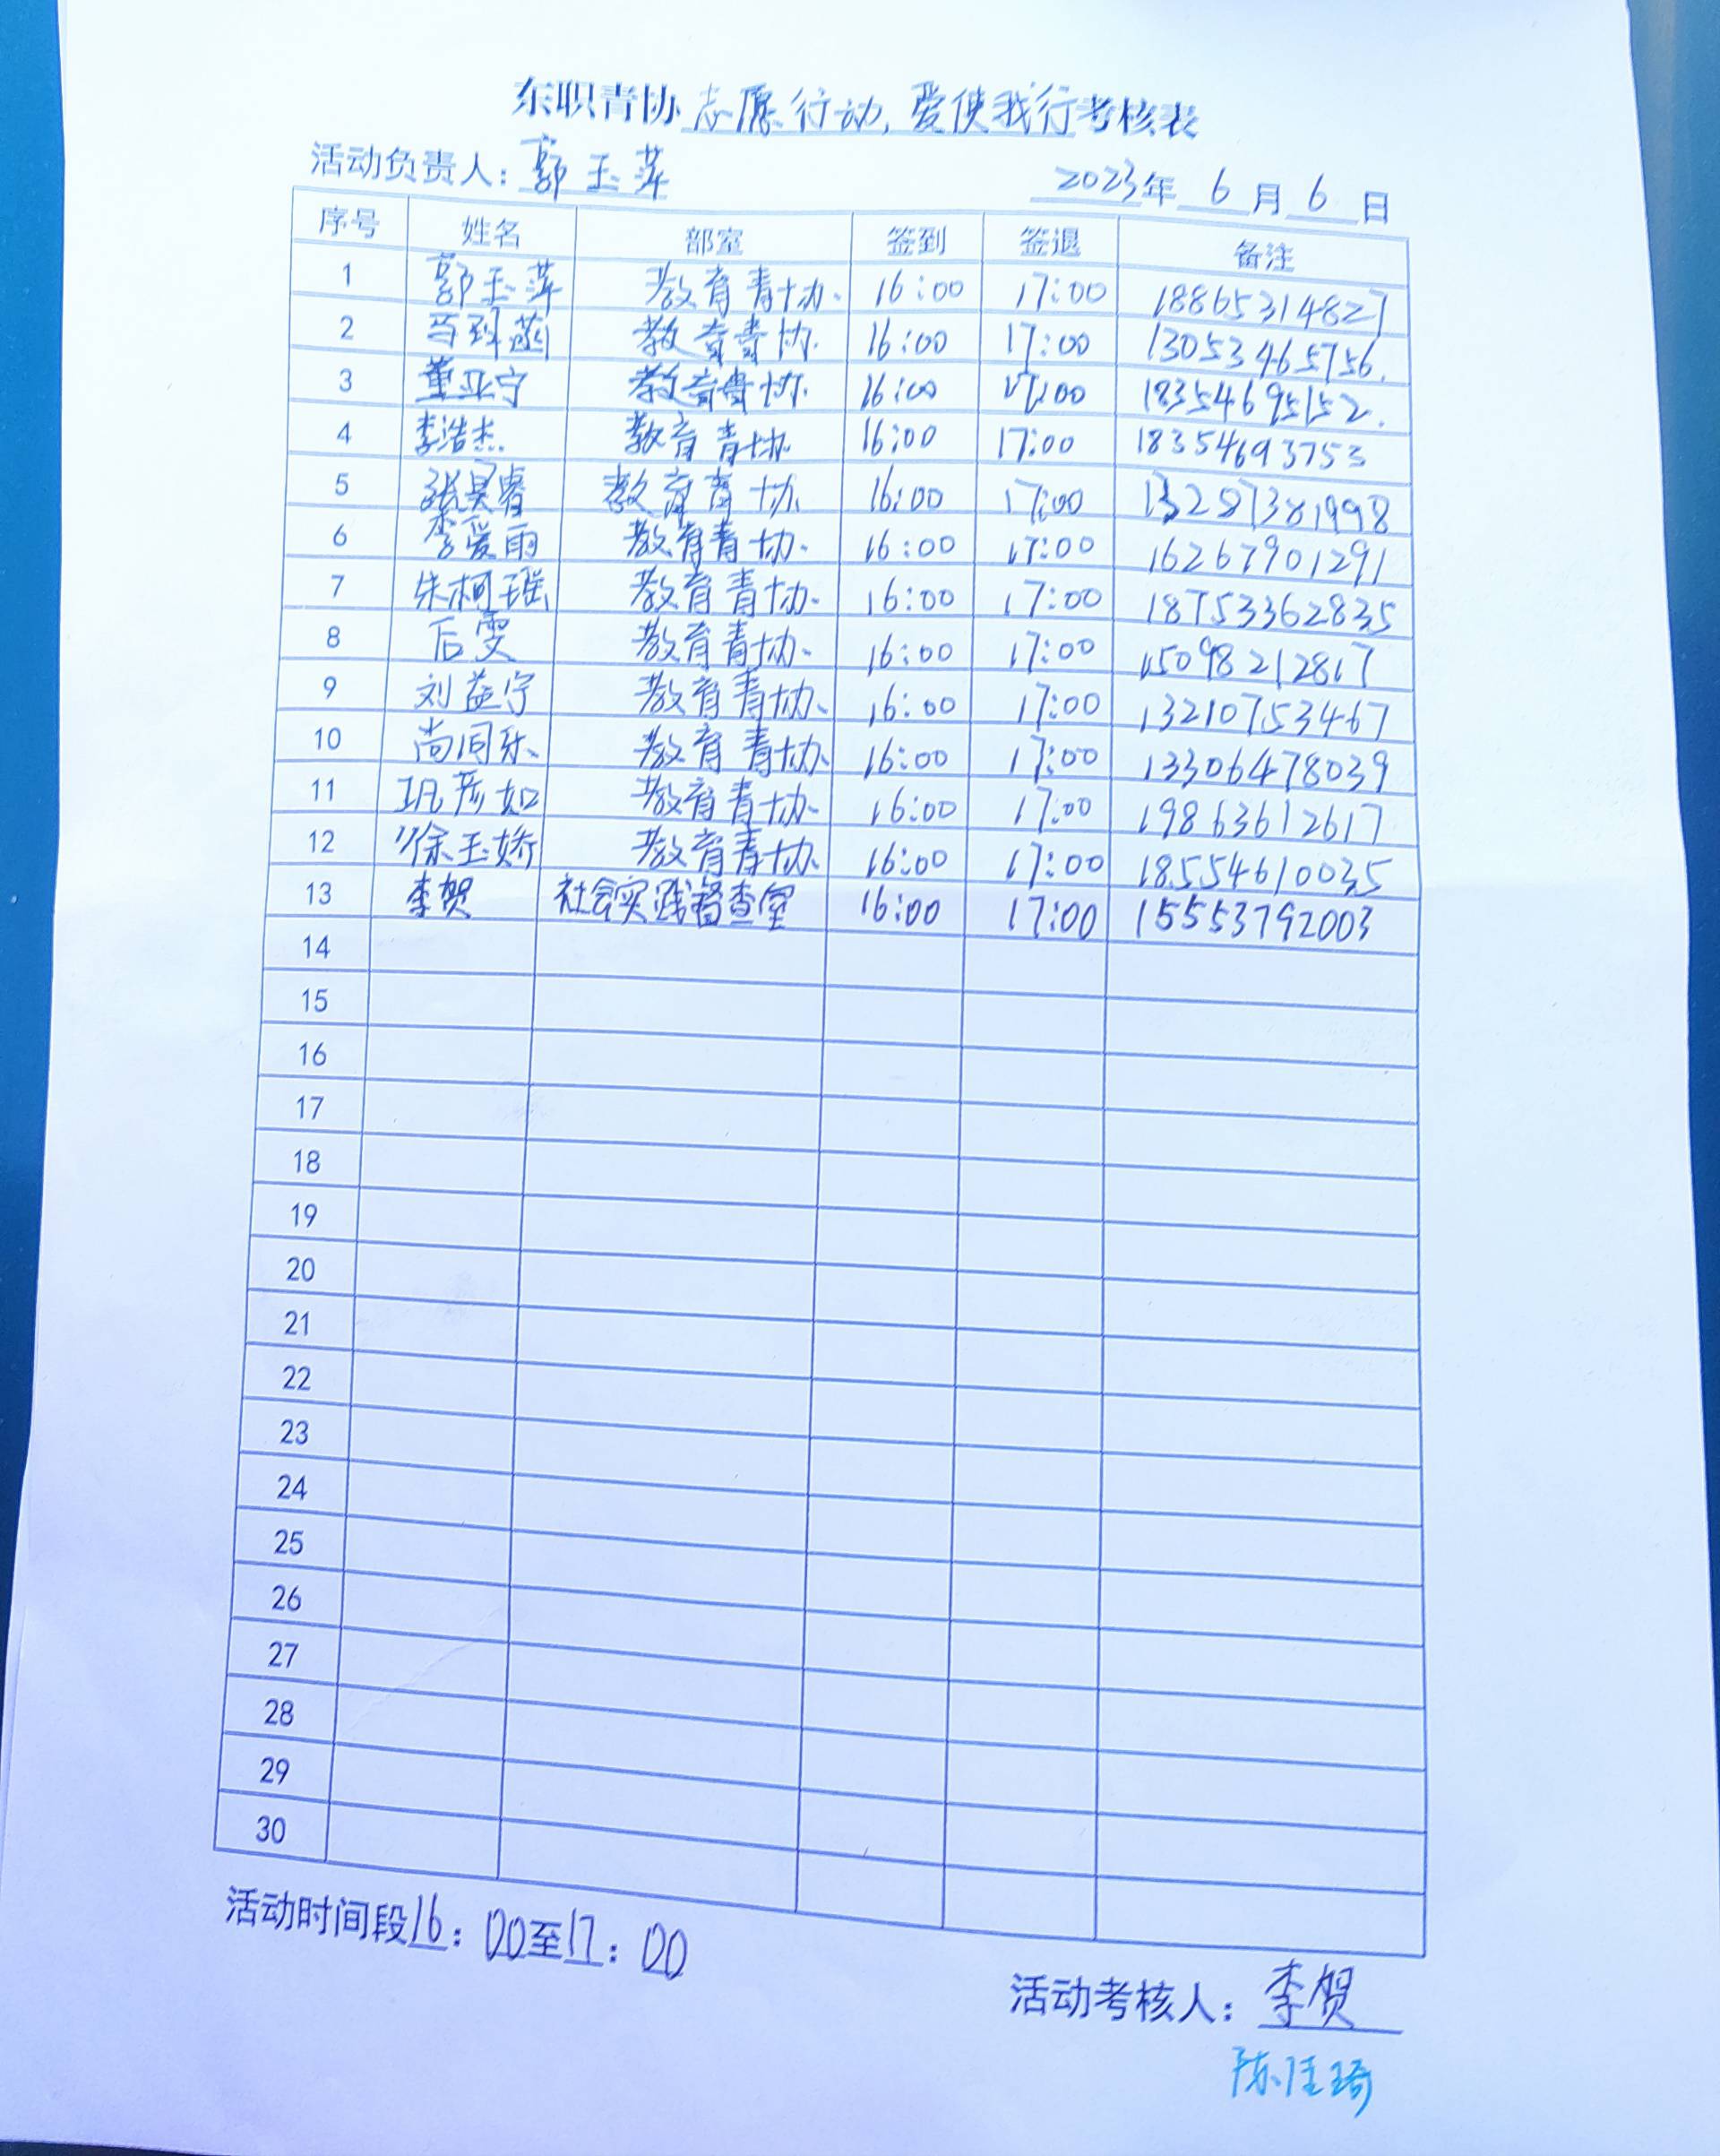 东职青协志愿行动,爱使我行考核表
活动负责人:郭玉萍 2023年6月6日
序号 姓名 部室 签到 签退 备注
1 郭玉萍 教育青协 16:00 17:00 18865314827
2 马珂菡 教育青协 16:00 17:00 13053465756
3 董亚宁 教育青协 16:00 17:00 18354695152
4 李浩杰 教育青协 16:00 17:00 18354693753
5 张昊睿 教育青协 16:00 17:00 13287381998
6 李爱雨 教育青协 16:00 17:00 16267901291
7 朱柯瑶 教育青协 16:00 17:00 18753362835
8 后雯 教育青协 16:00 17:00 15098212817
9 刘益宁 教育青协 16:00 17:00 13210753467
10 尚同乐 教育青协 16:00 17:00 13306478039
11 巩彦如 教育青协 16:00 17:00 19863612617
12 徐玉娇 教育青协 16:00 17:00 18554610035
13 李贺 社会实践督查室 16:00 17:00 15553792003
14
15
16
17
18
19
20
21
22
23
24
25
26
27
28
29
30
活动时间段16:00至17:00
活动考核人:李贺
陈佳琦